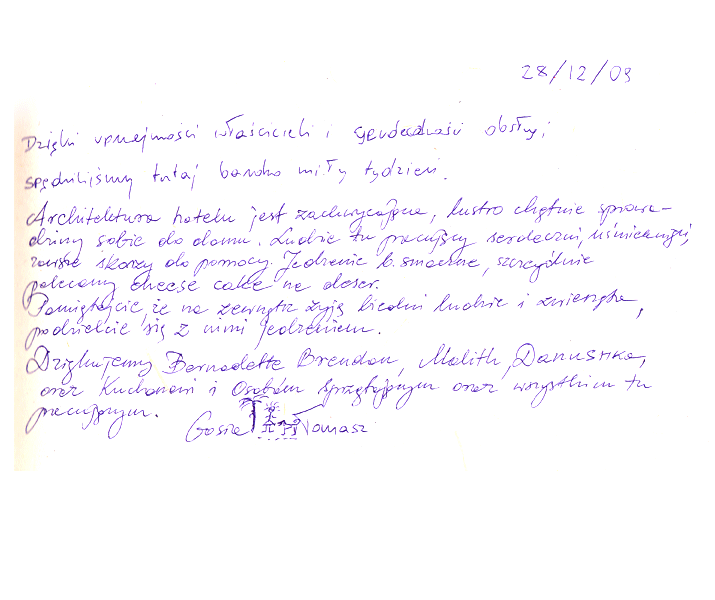 28/12/09
Dzięki uprzejmości właścicieli i serdeczności obsługi
spędziliśmy tutaj bardzo miły tydzień.
Architektura hotelu jest zachwycająca, lustro chętnie sprowa-
dzimy sobie do domu. Ludzie tu pracujący serdeczni, uśmiechnięci,
zawsze skorzy do pomocy. Jedzenie b. smaczne, szczególnie
polecamy cheese cake na deser.
Pamiętajcie, że na zewnątrz żyją biedni ludzie i zwierzęta,
podzielcie się z nimi jedzeniem.
Dziękujemy Bernadette Brendon, Malith, Danushka,
oraz Kucharzowi i Osobom sprzątającym oraz wszystkim tu
pracującym.
Gosia i Tomasz